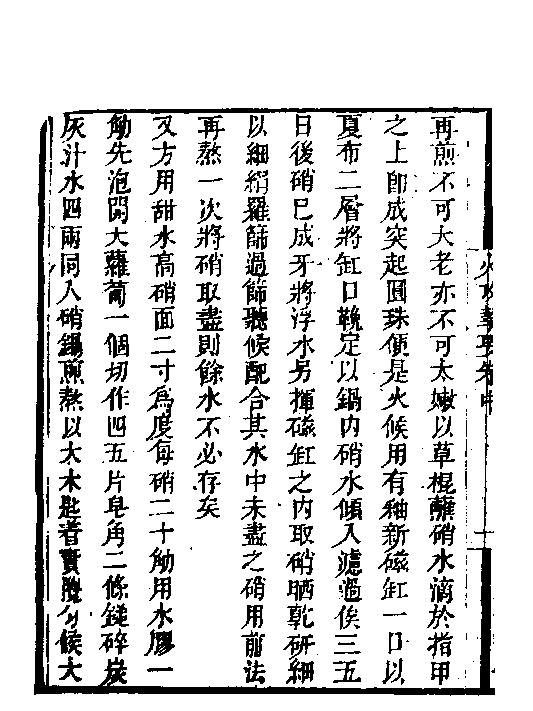 再煎不可大老亦不可太嫩以草棍蘸硝水滴於指甲
之上即成突起圓珠便是火候用有釉新磁缸一口以
夏布二層將缸口鞔定以鍋內硝水傾入濾過俟三五
日後硝已成牙將浮水另揮磁缸之內取硝晒乾研細
以細絹羅篩過篩聽候配合其水中未盡之硝用前法
再熬一次將硝取盡則餘水不必存矣
又方用甜水高硝面二寸為度每硝二十觔用水膠一
觔先泡開大蘿蔔一個切作四五片皂角二條鎚碎炭
灰汁水四兩同入硝鍋煎熬以大木匙者實攪勻候大